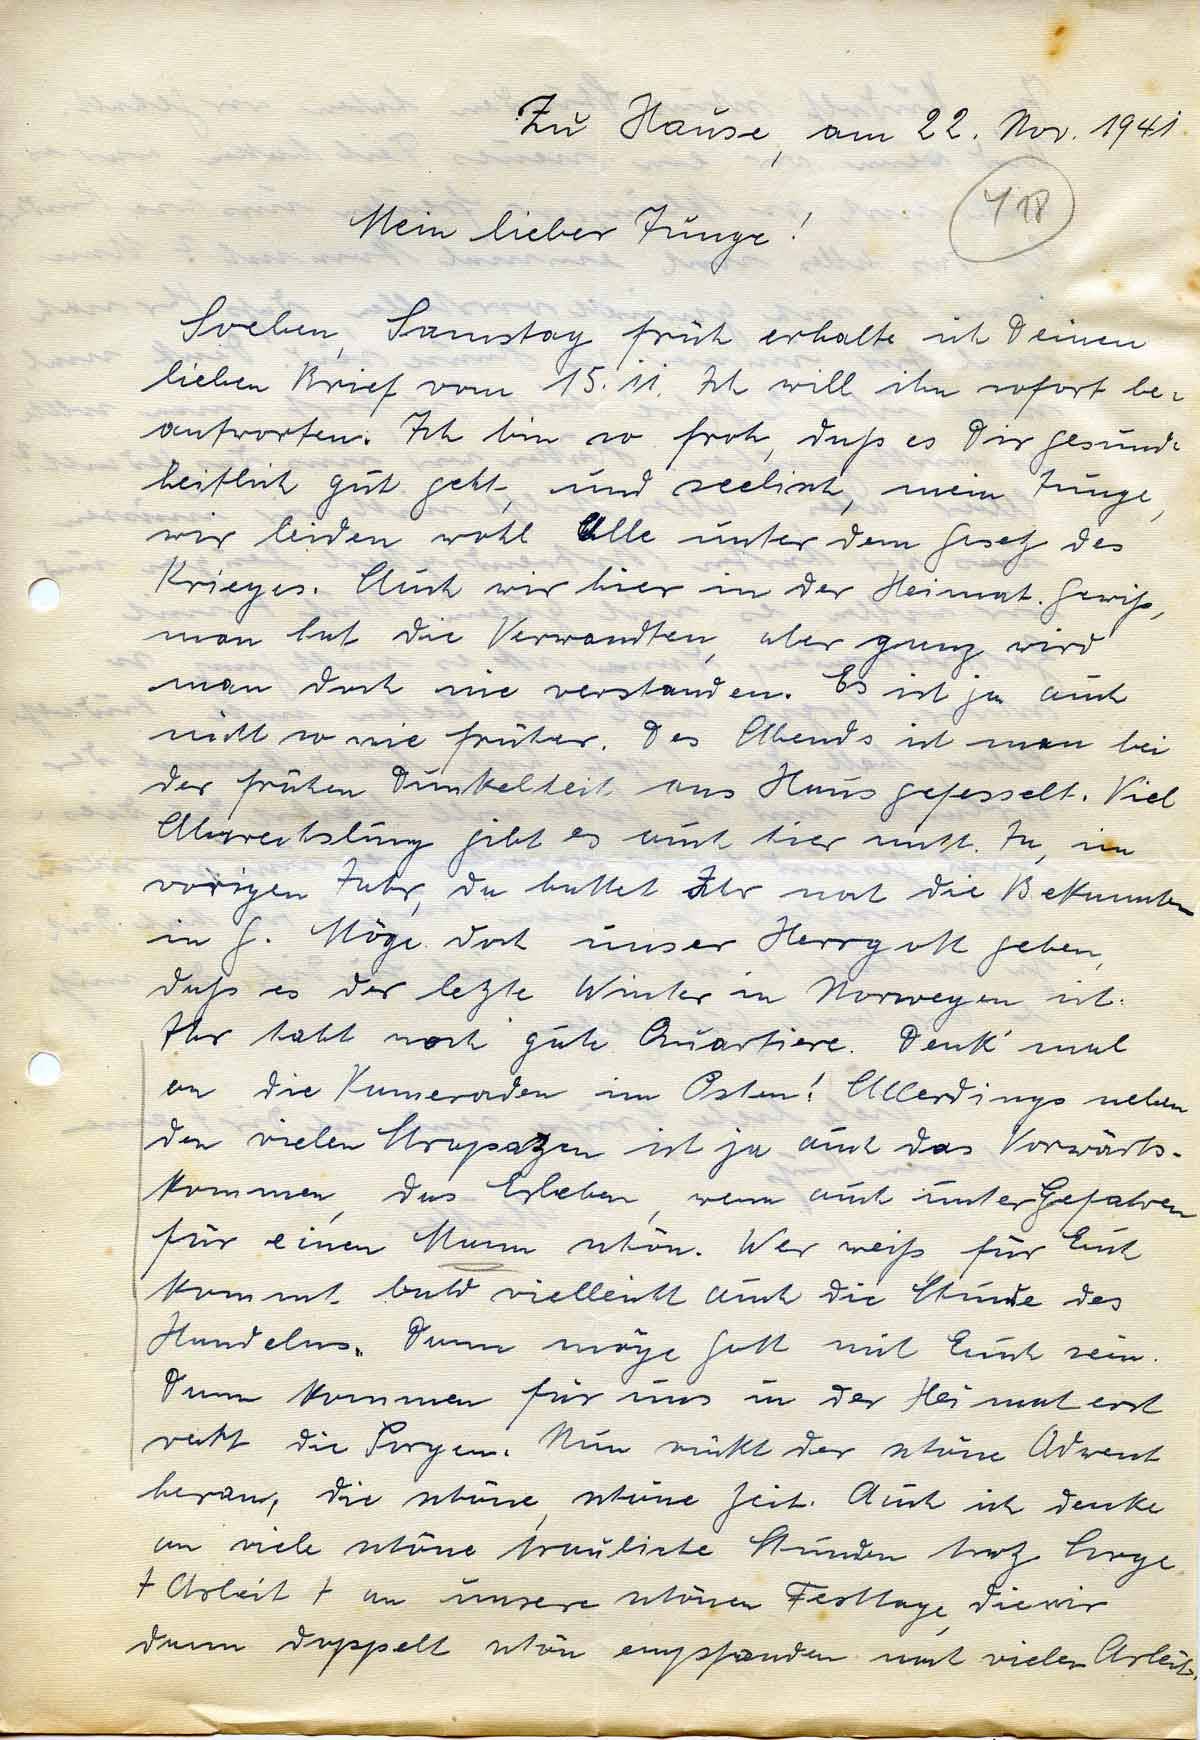 Zu Hause, am 22. Nov. 1941
118
Mein lieber Junge!
Soeben, Samstag früh erhalte ich Deinen
lieben Brief vom 15.11. Ich will ihn sofort be-
antworten. Ich bin so froh, daß es Dir gesund-
heitlich gut geht, und seelisch, mein Junge,
wir leiden wohl Alle unter dem Gesetz des
Krieges. Auch wir hier in der Heimat. Gewiß,
man hat die Verwandten, aber ganz wird
man doch nie verstanden. Es ist ja auch
nicht so wie früher. Des Abends ist man bei
der frühen Dunkelheit ans Haus gefesselt. Viel
Abwechslung gibt es auch hier nicht. Ja, im
vorigen Jahr, da hattet Ihr noch die Bekannten
in G. Möge doch unser Herrgott geben,
daß es der letzte Winter in Norwegen ist.
Ihr habt noch gute Quartiere. Denk' mal
an die Kameraden im Osten! Allerdings neben
den vielen Strapazen ist ja auch das Vorwärts-
kommen, das Erleben, wenn auch unter Gefahren
für einen Mann schön. Wer weiß für Euch
kommt bald vielleicht auch die Stunde des
Handelns. Dann möge Gott mit Euch sein.
Dann kommen für uns in der Heimat erst
recht die Sorgen. Nun rückt der schöne Advent
heran, die schöne, schöne Zeit. Auch ich denke
an viele schöne trauliche Stunden trotz Sorge
+ Arbeit + an unsere schönen Festtage, die wir
dann doppelt schön empfanden nach vieler Arbeit.